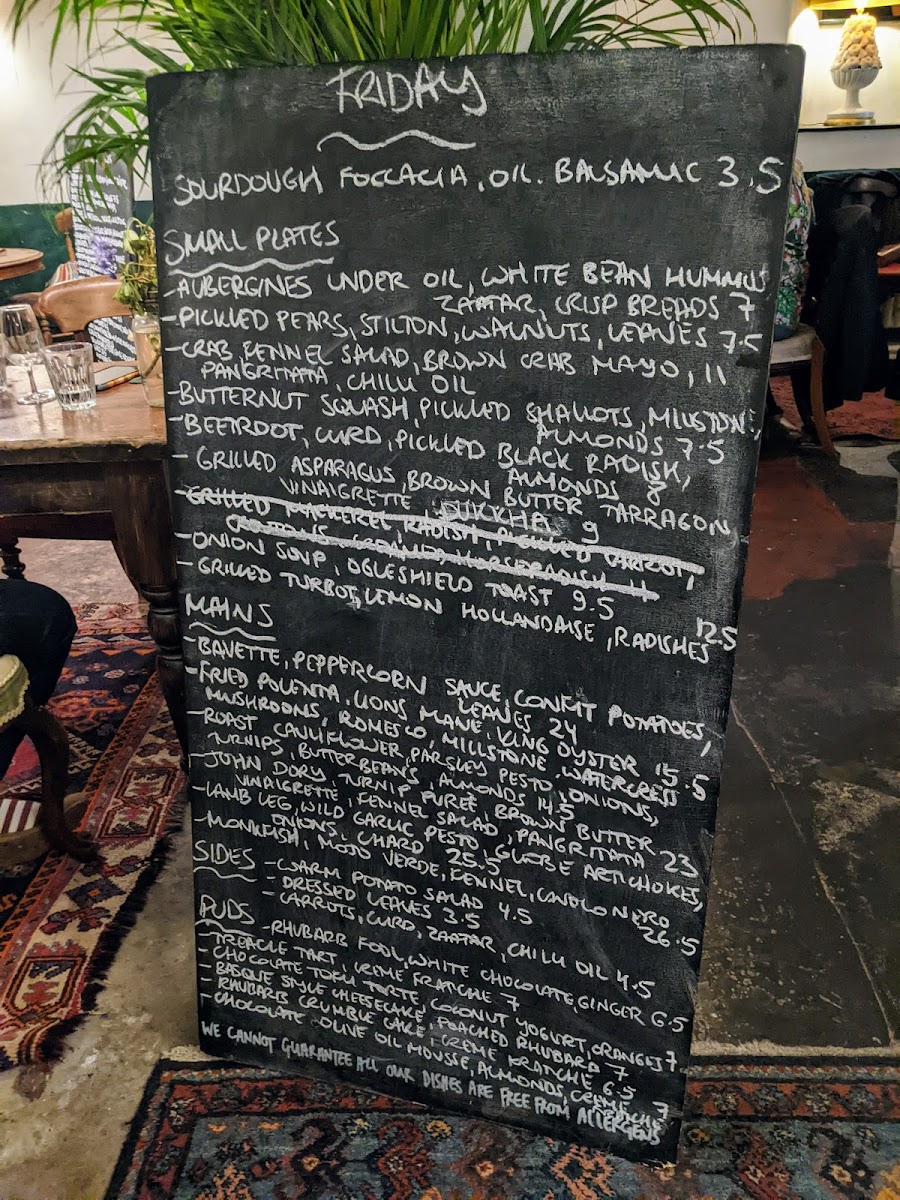 FRIDAY
SOURDOUGH FOCCACIA, OIL. BALSAMIC 3.5
SMALL PLATES
-AUBERGINES UNDER OIL, WHITE BEAN HUMMUS
ZAATAR, CRISP BREADS 7
-PICKLED PEARS, STILTON, WALNUTS, LEAVES 7.5
-CRAB, FENNEL SALAD, BROWN CRAB MAYO, 11
PANGRITATA, CHILLI OIL
-BUTTERNUT SQUASH, PICKLED SHALLOTS, MILLSTONE,
ALMONDS 7.5
-BEETROOT, CURD, PICKLED BLACK RADISH,
ALMONDS 8
- GRILLED ASPARAGUS, BROWN BUTTER TARRAGON
VINAIGRETTE, DUKKHA 9
-GRILLED MACKEREL, RADISH, PICKLED CARROT,
CROUTONS, CREAMED HORSERADISH 11
-ONION SOUP, OGLESHIELD TOAST 9.5
-GRILLED TURBOT, LEMON HOLLANDAISE, RADISHES 12.5
MAINS
-BAVETTE, PEPPERCORN SAUCE, CONFIT POTATOES,
LEAVES 24
-FRIED POLENTA, LIONS MANE, KING OYSTER
MUSHROOMS, ROMESCO, MILLSTONE, WATERCRESS 15.5
-ROAST CAULIFLOWER, PARSLEY PESTO, ONIONS,
TURNIPS, BUTTERBEANS, ALMONDS 14.5
-JOHN DORY, TURNIP PUREÉ, BROWN BUTTER
VINAIGRETTE, FENNEL SALAD, PANGRITATA 23
-LAMB LEG, WILD GARLIC PESTO, GLOBE ARTICHOKES,
ONIONS, CHARD 25.5
-MONKFISH, MOJO VERDE, FENNEL, CAVOLO NERO 26.5
SIDES -WARM POTATO SALAD 4.5
- DRESSED LEAVES 3.5
- CARROTS, CURD, ZAATAR, CHILLI OIL 4.5
PUDS -RHUBARB FOOL, WHITE CHOCOLATE, GINGER 6.5
-TREACLE TART, CREME FRAICHE 7
-CHOCOLATE TOFU TORTE, COCONUT YOGURT, ORANGES 7
-BASQUE STYLE CHEESECAKE, POACHED RHUBARB 7
-RHUBARB CRUMBLE CAKE, CREME FRAICHE 6.5
-CHOCOLATE OLIVE OIL MOUSSE, ALMONDS, CREME FRAICHE 7
WE CANNOT GUARANTEE ALL OUR DISHES ARE FREE FROM ALLERGENS